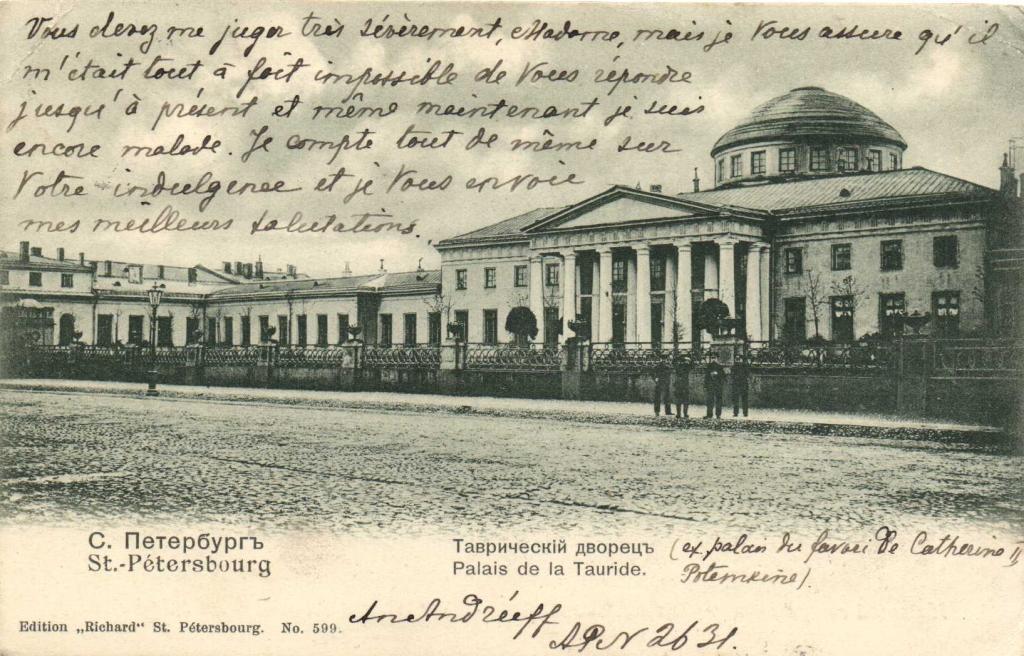 Vous devez me juger très sévèrement, Madame, mais je Vous assure qu'il
m'était tout à fait impossible de Vous répondre
jusqu'à présent et même maintenant je suis
encore malade. Je compte tout de même sur
Votre indulgence et je Vous envoie
mes meilleurs salutations.
С. Петербургъ
St.-Pétersbourg
Таврическій дворецъ (ex palais du favori de Catherine II
Palais de la Tauride. Potemkine).
Edition „Richard“ St. Pétersbourg. No. 599.
An Andréeff
APN 2631.